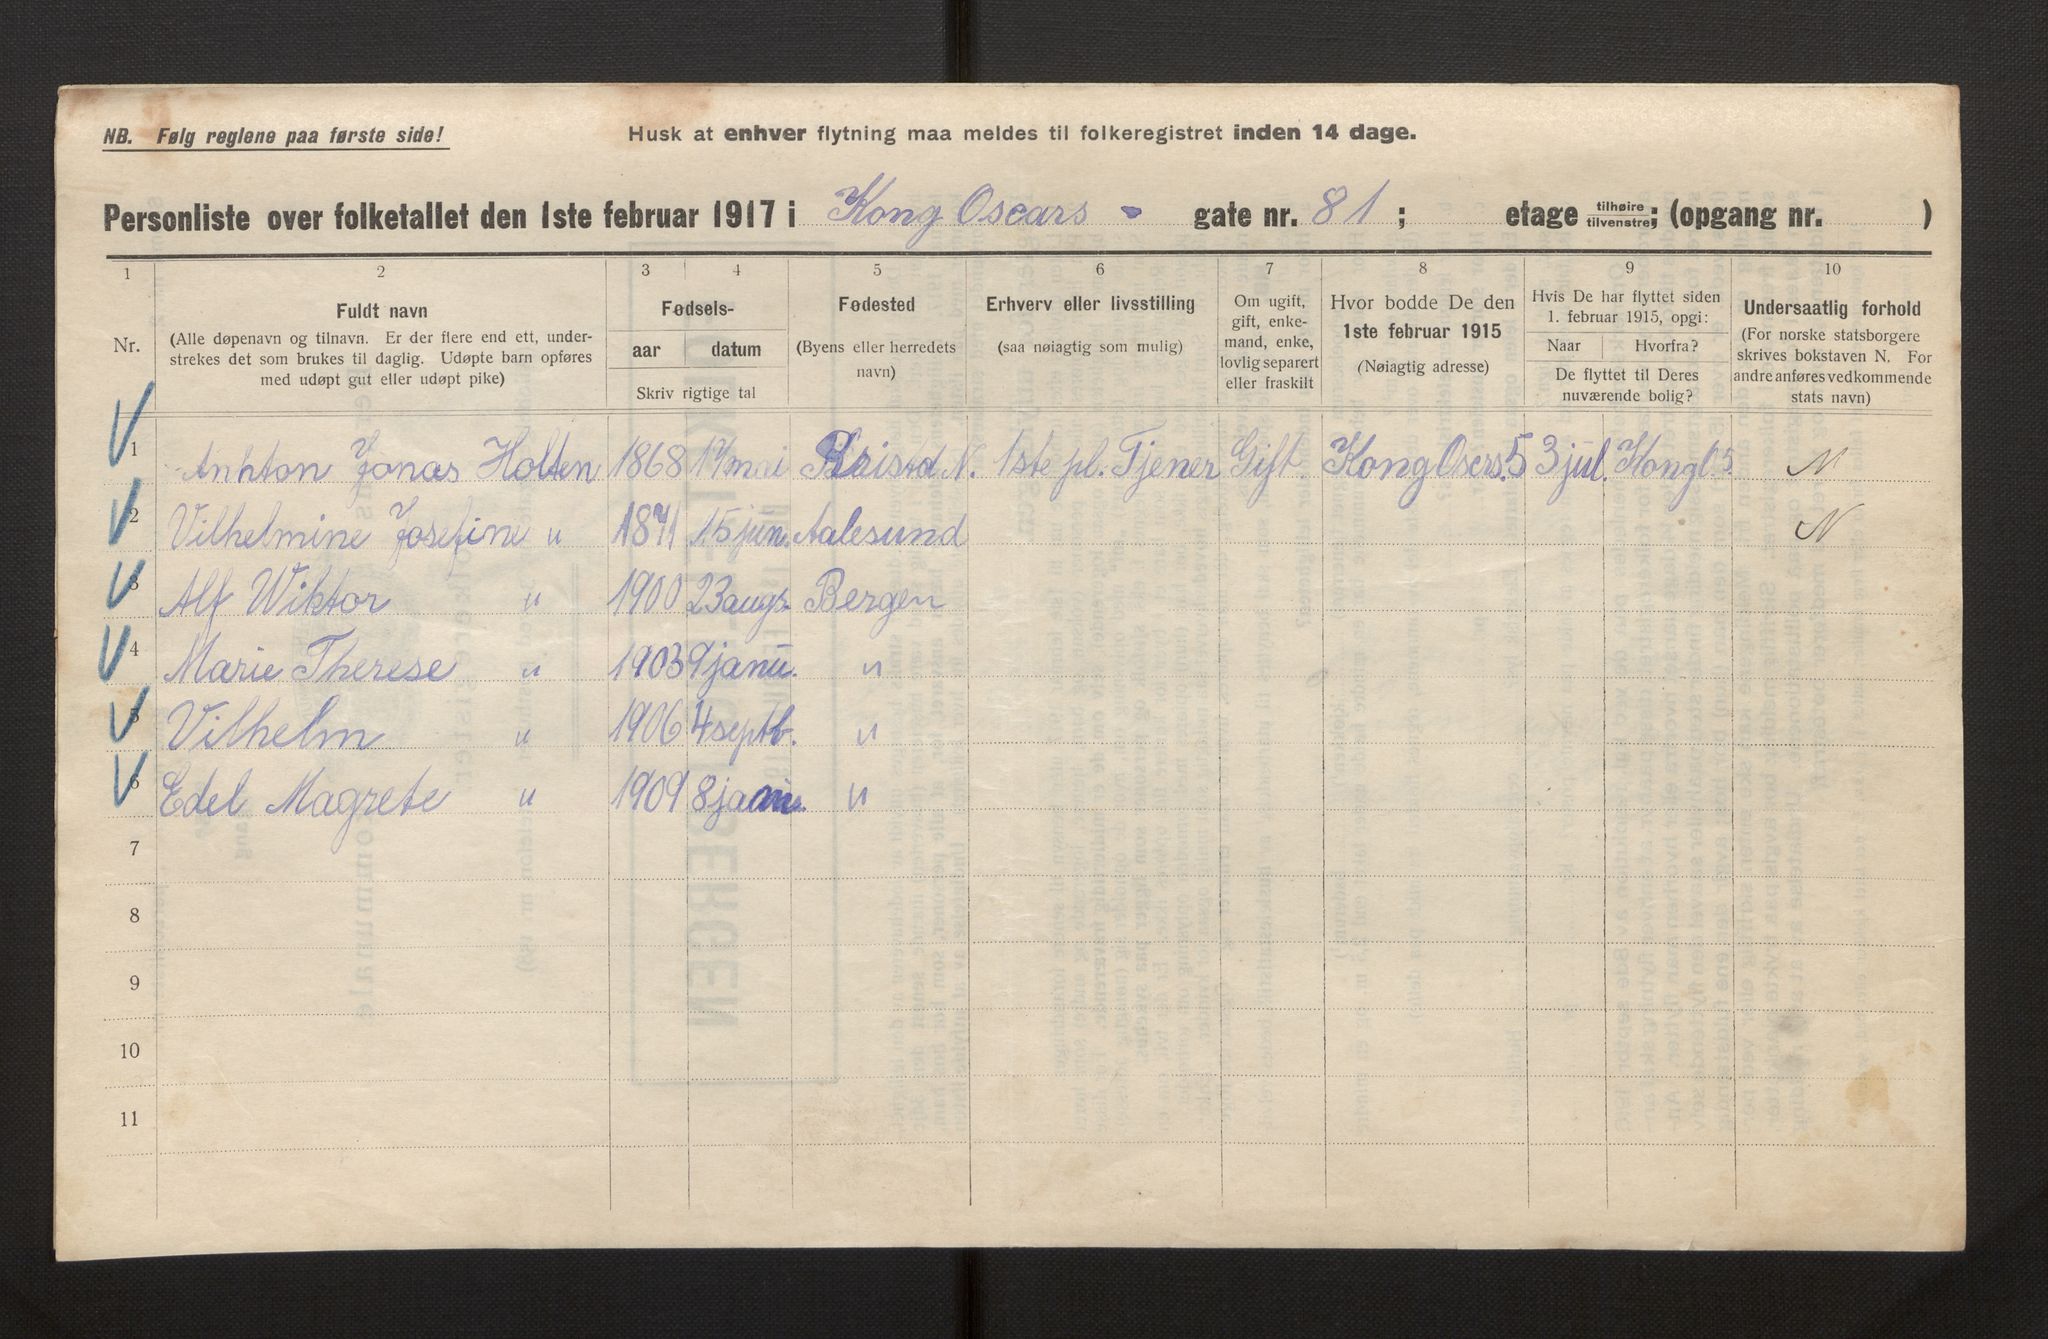 NB. Følg reglene paa første side!
Husk at enhver flytning maa meldes til folkeregistret inden 14 dage.
Personliste over folketallet den 1ste februar 1917 i Kong Oscars - gate nr. 81 ; etage tilhøire tilvenstre; (opgang nr. )
1 2 3 4 5 6 7 8 9 10
Nr.
Fuldt navn
(Alle døpenavn og tilnavn. Er der flere end ett, under-
strekes det som brukes til daglig. Udøpte barn opføres
med udøpt gut eller udøpt pike)
Fødsels-
aar datum
Skriv rigtige tal
Fødested
(Byens eller herredets
navn)
Erhverv eller livsstilling
(saa nøiagtig som mulig)
Om ugift,
gift, enke-
mand, enke,
lovlig separert
eller fraskilt
Hvor bodde De den
1ste februar 1915
(Nøiagtig adresse)
Hvis De har flyttet siden
1. februar 1915, opgi:
Naar Hvorfra?
De flyttet til Deres
nuværende bolig?
Undersaatlig forhold
(For norske statsborgere
skrives bokstaven N. For
andre anføres vedkommende
stats navn)
1 Anhton Jonas Holten 1868 mai N. 1ste pl. Tjener Gift Kong Oscrs. 5 3 jul. Kong O. 5 N
2 Vilhelmine Josefine " 1871 15 jun. Aalesund N
3 Alf Wiktor " 1900 23 augs. Bergen
4 Marie Therese " 1903 9 janu. "
5 Vilhelm " 1906 4 septb. "
6 Edel Magrete " 1909 8 "
7
8
9
10
11